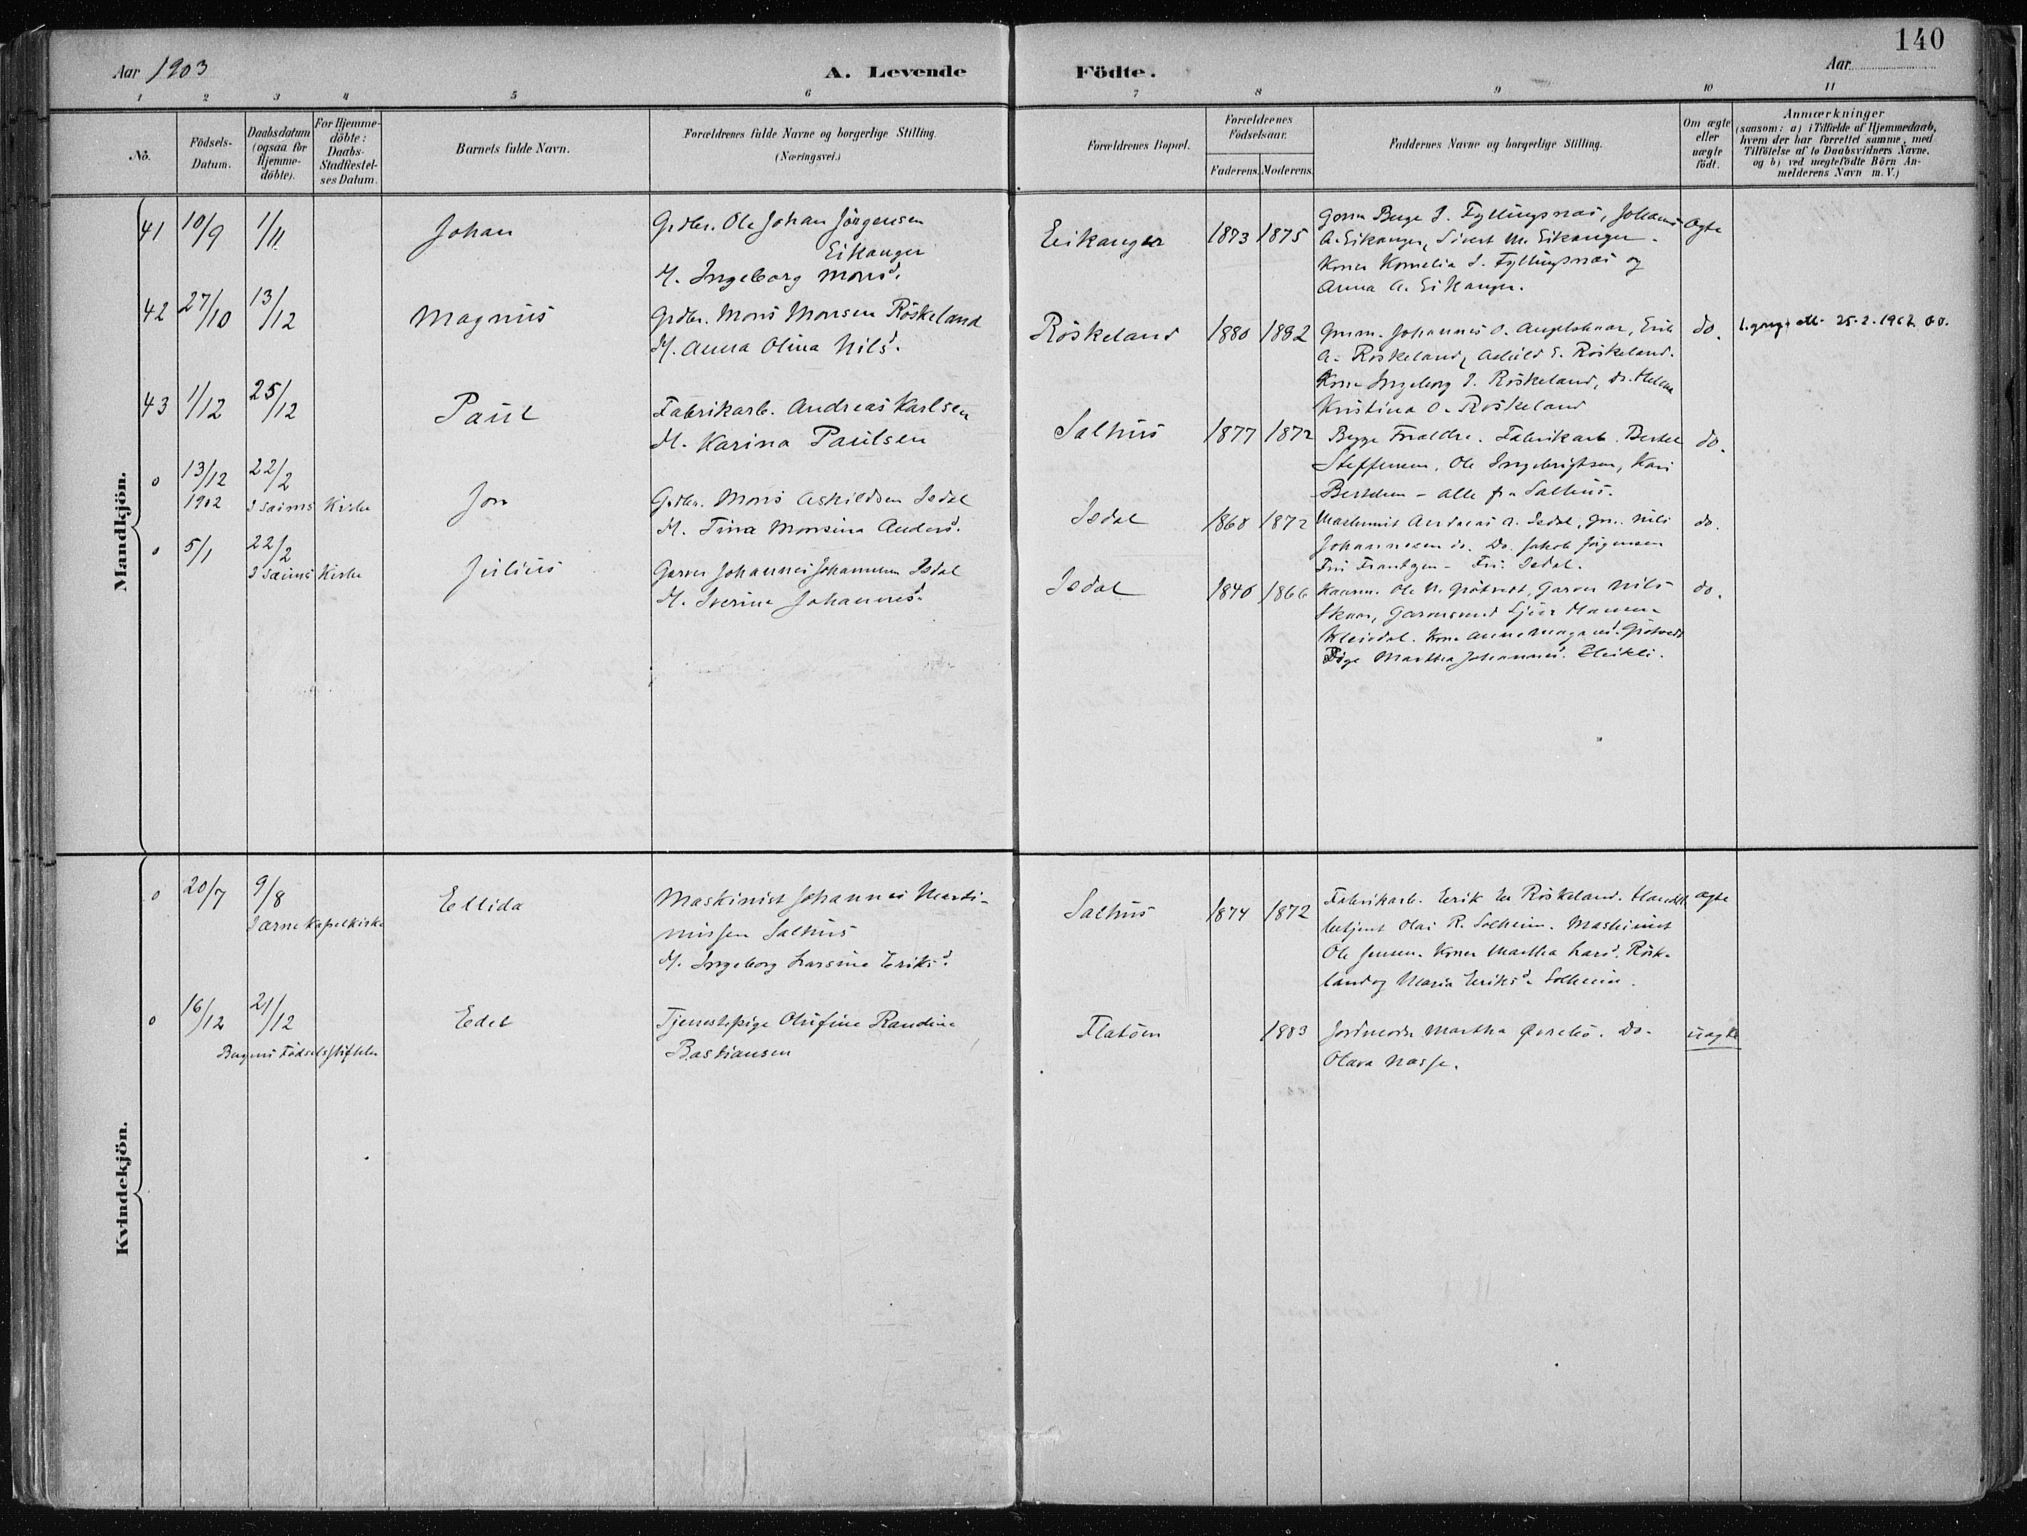 140
Aar 1903
A. Levende
Födte.
Aar
1 2 3 4 5 6 7 8 9 10 11
No.
Födsels-
Datum.
Daabsdatum
(ogsaa for
Hjemme-
döbte).
For Hjemme-
döbte:
Daabs-
Stadfæstel-
ses Datum.
Barnets fulde Navn.
Forældrenes fulde Navne og borgerlige Stilling.
(Næringsvei.)
Forældrenes Bopæl.
Forældrenes
Födselsaar.
Faderens. Moderens.
Faddernes Navne og borgerlige Stilling.
Om ægte
eller
uægte
födt.
Anmærkninger
(saasom: a) i Tilfælde af Hjemmedaab,
hvem der har forrettet samme, med
Tilföielse af to Daabsvidners Navne,
og b) ved uægtefödte Börn An-
melderens Navn m. V.)
Mandkjön.
41 10/9 1/11 Johan
Grdbr. Ole Johan Jörgensen
Eikanger
M. Ingeborg Monsd.
Eikanger 1873 1875
Berge J. Fyllingsnæs, Johannes
A. Eikanger, Sivert M. Eikanger.
Koner Kornelia J. Fyllingsnæs og
Anna A. Eikanger.
ægte
42 27/10 13/12 Magnus
Grdbr. Mons Monsen Röskeland
M. Anna Olina Nilsd.
Röskeland 1880 1882
Johannes O. Erik
A. Röskeland, Askild E. Röskeland.
Kone Ingeborg J. Röskeland, do. Helene
Kristina O. Röskeland
do.
25-2-1962
43 1/12 25/12 Paul
Fabrikarb. Andreas Karlsen
M. Karina Paulsen
Salhus 1877 1872
Begge Forældre. Fabrikarb. Bertel
Steffensen, Ole Ingebrigtsen, Kari
Bertelsen – alle fra Salhus.
do.
o 13/12 1902 22/2
I Sæims Kirke
Jon
Grdbr. Mons Askildsen Isdal
M. Tina Monsina Andersd.
Isdal 1868 1872
Andreas A. Isdal, Nils
Johannesen do. Do. Jakob Jörgensen
Isdal.
do.
o 5/1 22/2
I Sæims Kirke
Julius
Garver Johannes Johannesen Isdal
M. Severine Johannesd.
Isdal 1840 1866
Ole N. Garver Nils
Skaar,
Kleivdal. Kone Anne
Pige Martha Johannesd.
do.
Kvindekjön.
o 20/7 9/8
I Ærne Kapelkirke
Ellida
Maskinist Johannes Marti-
nussen Salhus
M. Ingeborg Larsine Eriksd.
Salhus 1874 1872
Fabrikarb. Erik M. Röskeland. Handels-
betjent Olai R. Solheim. Maskinist
Ole Jensen. Koner Martha Larsd. Röske-
land og Maria Eriksd. Solheim.
ægte
o 16/12 21/12
Bergens Födselsstiftelse
Edel
Tjenestepige Olufine Randine
Bastiansen
Flatöen 1883
Jordmoder Martha Övrebö. Do.
Olava Nasse.
uægte